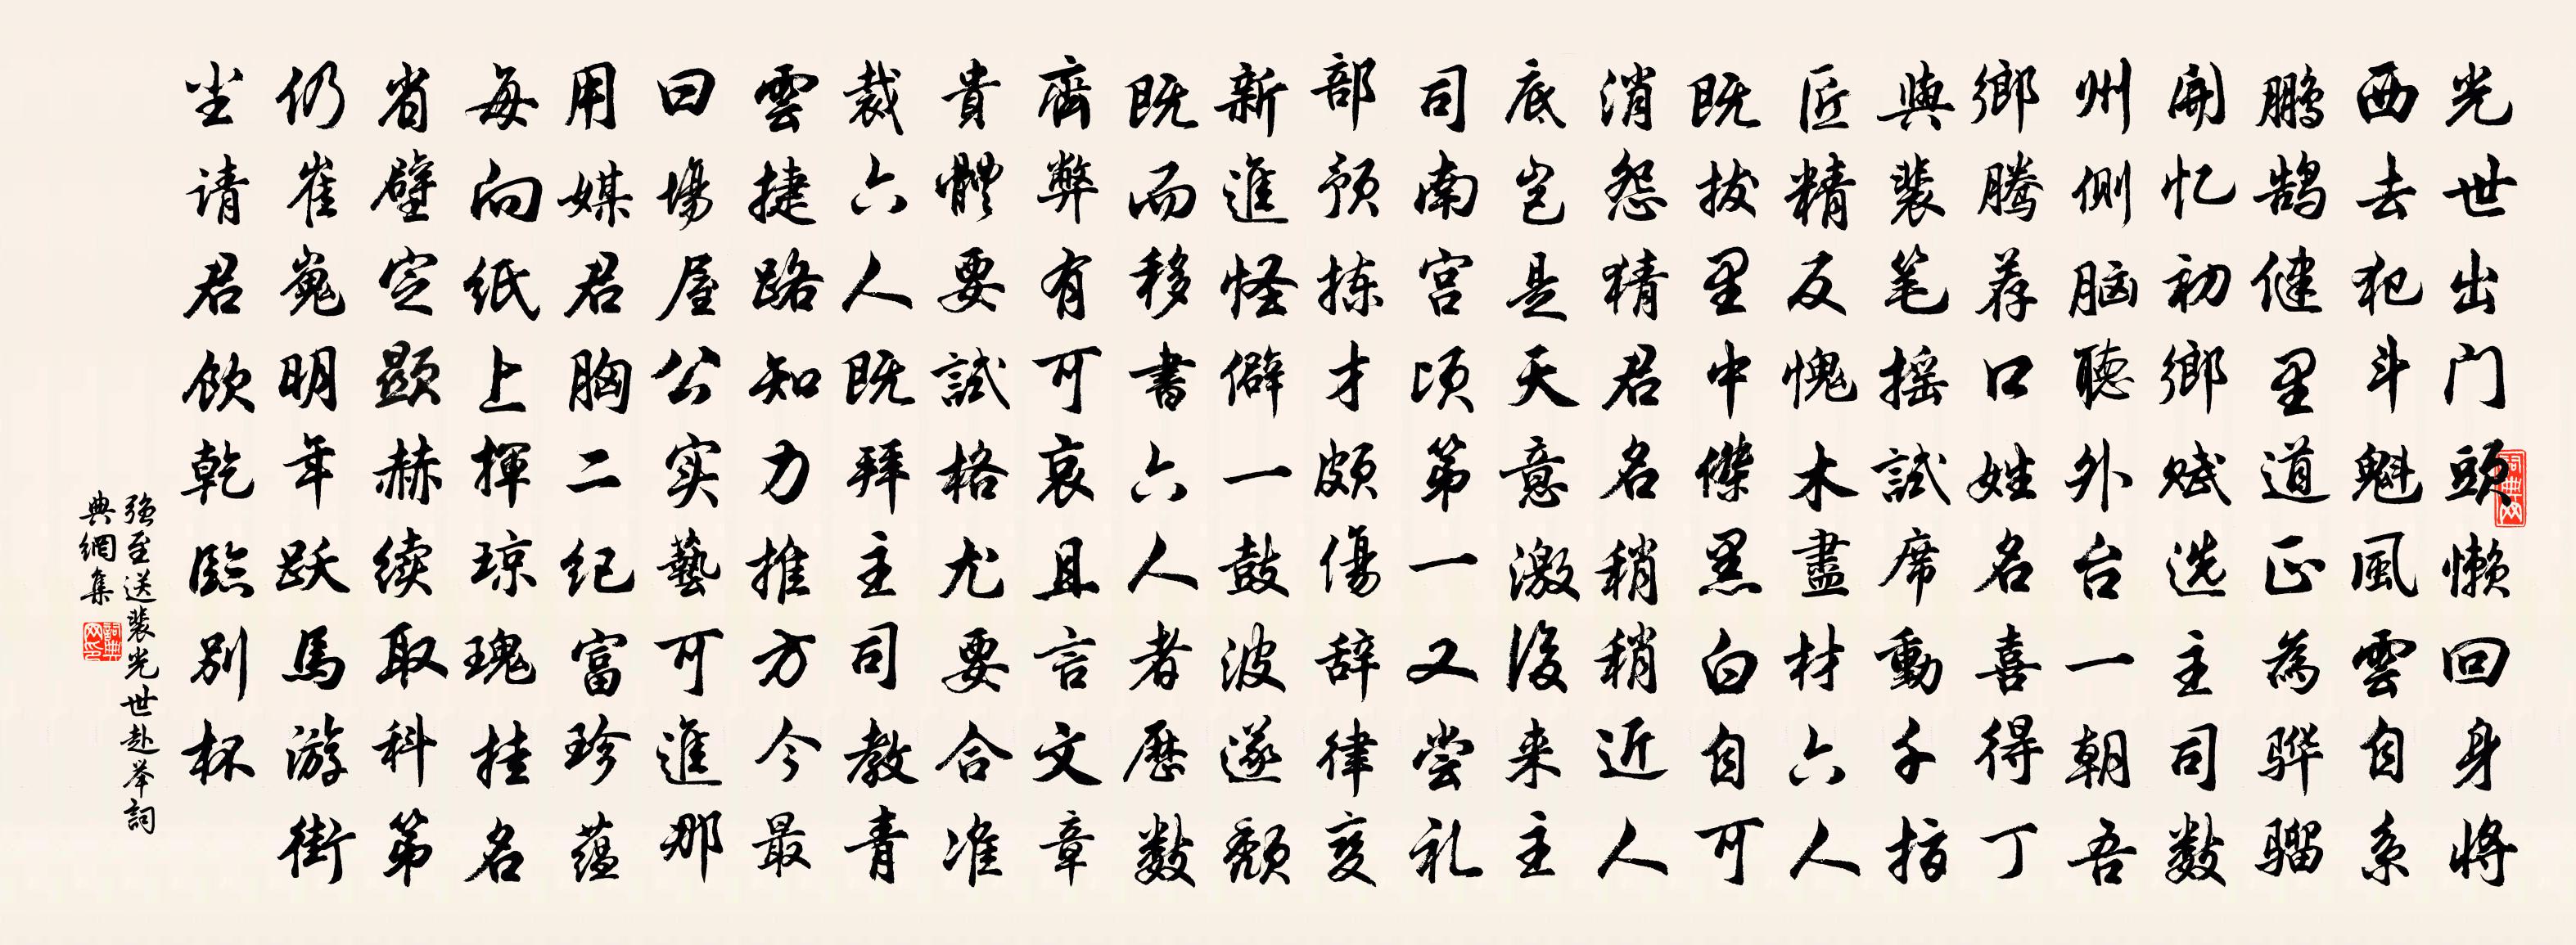 光世出门頭懒回身将
西去犯斗魁風雲自系
鹏鹄健里道正為骅骝
開忆初鄉赋选主司数
州側脑聽外台一朝吾
鄉腾荐口姓名喜得丁
與裴笔摇試席動千指
匠精反愧木盡材六人
既拔里中傑黑白自可
消怨猜君名稍稍近人
底岂是天意激後来主
司南宫顷第一又尝礼
部预拣才颇傷辞律变
新進怪僻一鼓波遂颓
既而移書六人者歷数
齊弊有可哀且言文章
貴體要試格尤要合准
裁六人既拜主司教青
雲捷路知力推方今最
曰場屋公实藝可進那
用媒君胸二纪富珍蕴
每向纸上揮琼瑰挂名
省壁定顯赫续取科第
仍崔嵬明年跃馬游街
坐请君飲乾臨别杯
强至送裴光世赴举詞
典網集
詞典网
詞典网印